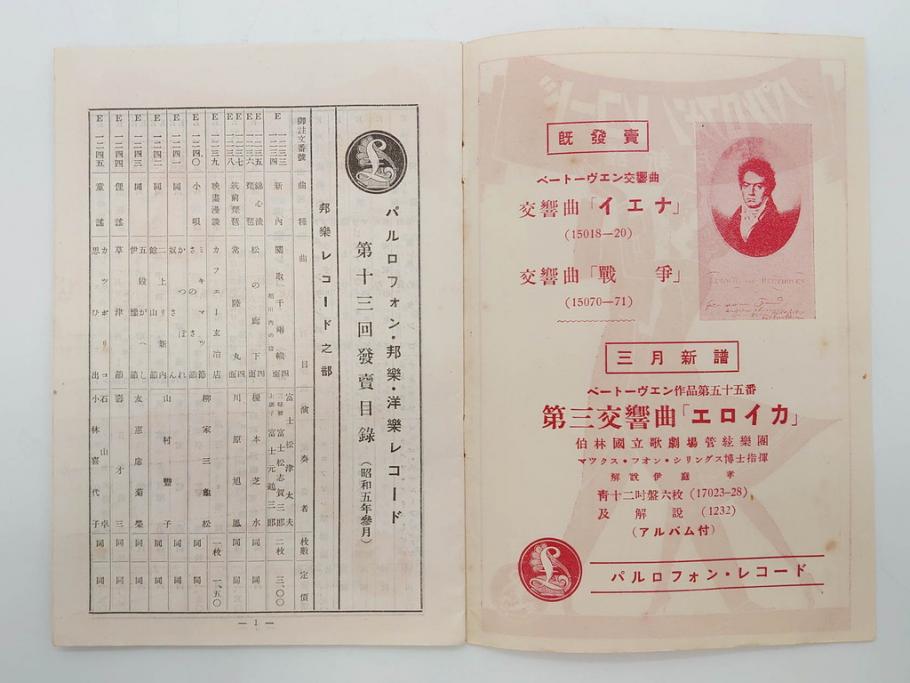 パルロフォン・邦樂・洋樂レコード
第十三回發賣目錄（昭和五年參月）
邦樂レコード之部
御註文番號 曲種 曲目 演奏者 枚數 定價
E一二三三 E一二三四 新內 關取千兩幟 富士松津太夫 二枚 三、〇〇
E一二三五 E一二三六 錦心流琵琶 松の廊下 榎本芝水 同 同
E一二三七 E一二三八 筑前琵琶 常陸丸 川原旭 同 同
E一二三九 映畫漫談 カフエー玄冶店 柳家三龜松 一枚 一、五〇
E一二四〇 小唄 同 同
E一二四一 同 同 同
E一二四二 同 二上り新內 山村豐子 同 同
E一二四三 同 太惠席菊榮 同 同
E一二四四 俚謠 草津節 壽才三 同 同
E一二四五 童謠 小林喜代子 同 同
— 1 —
既發賣
ベートーヴエン交響曲
交響曲「イエナ」
(15018—20)
交響曲「戰爭」
(15070—71)
三月新譜
ベートーヴエン作品第五十五番
第三交響曲「エロイカ」
伯林國立歌劇場管絃樂團
マツクス・フオン・シリングス博士指揮
解說 伊庭孝
靑十二吋盤六枚 (17023-28)
及解說 (1232)
(アルバム付)
パルロフォン・レコード